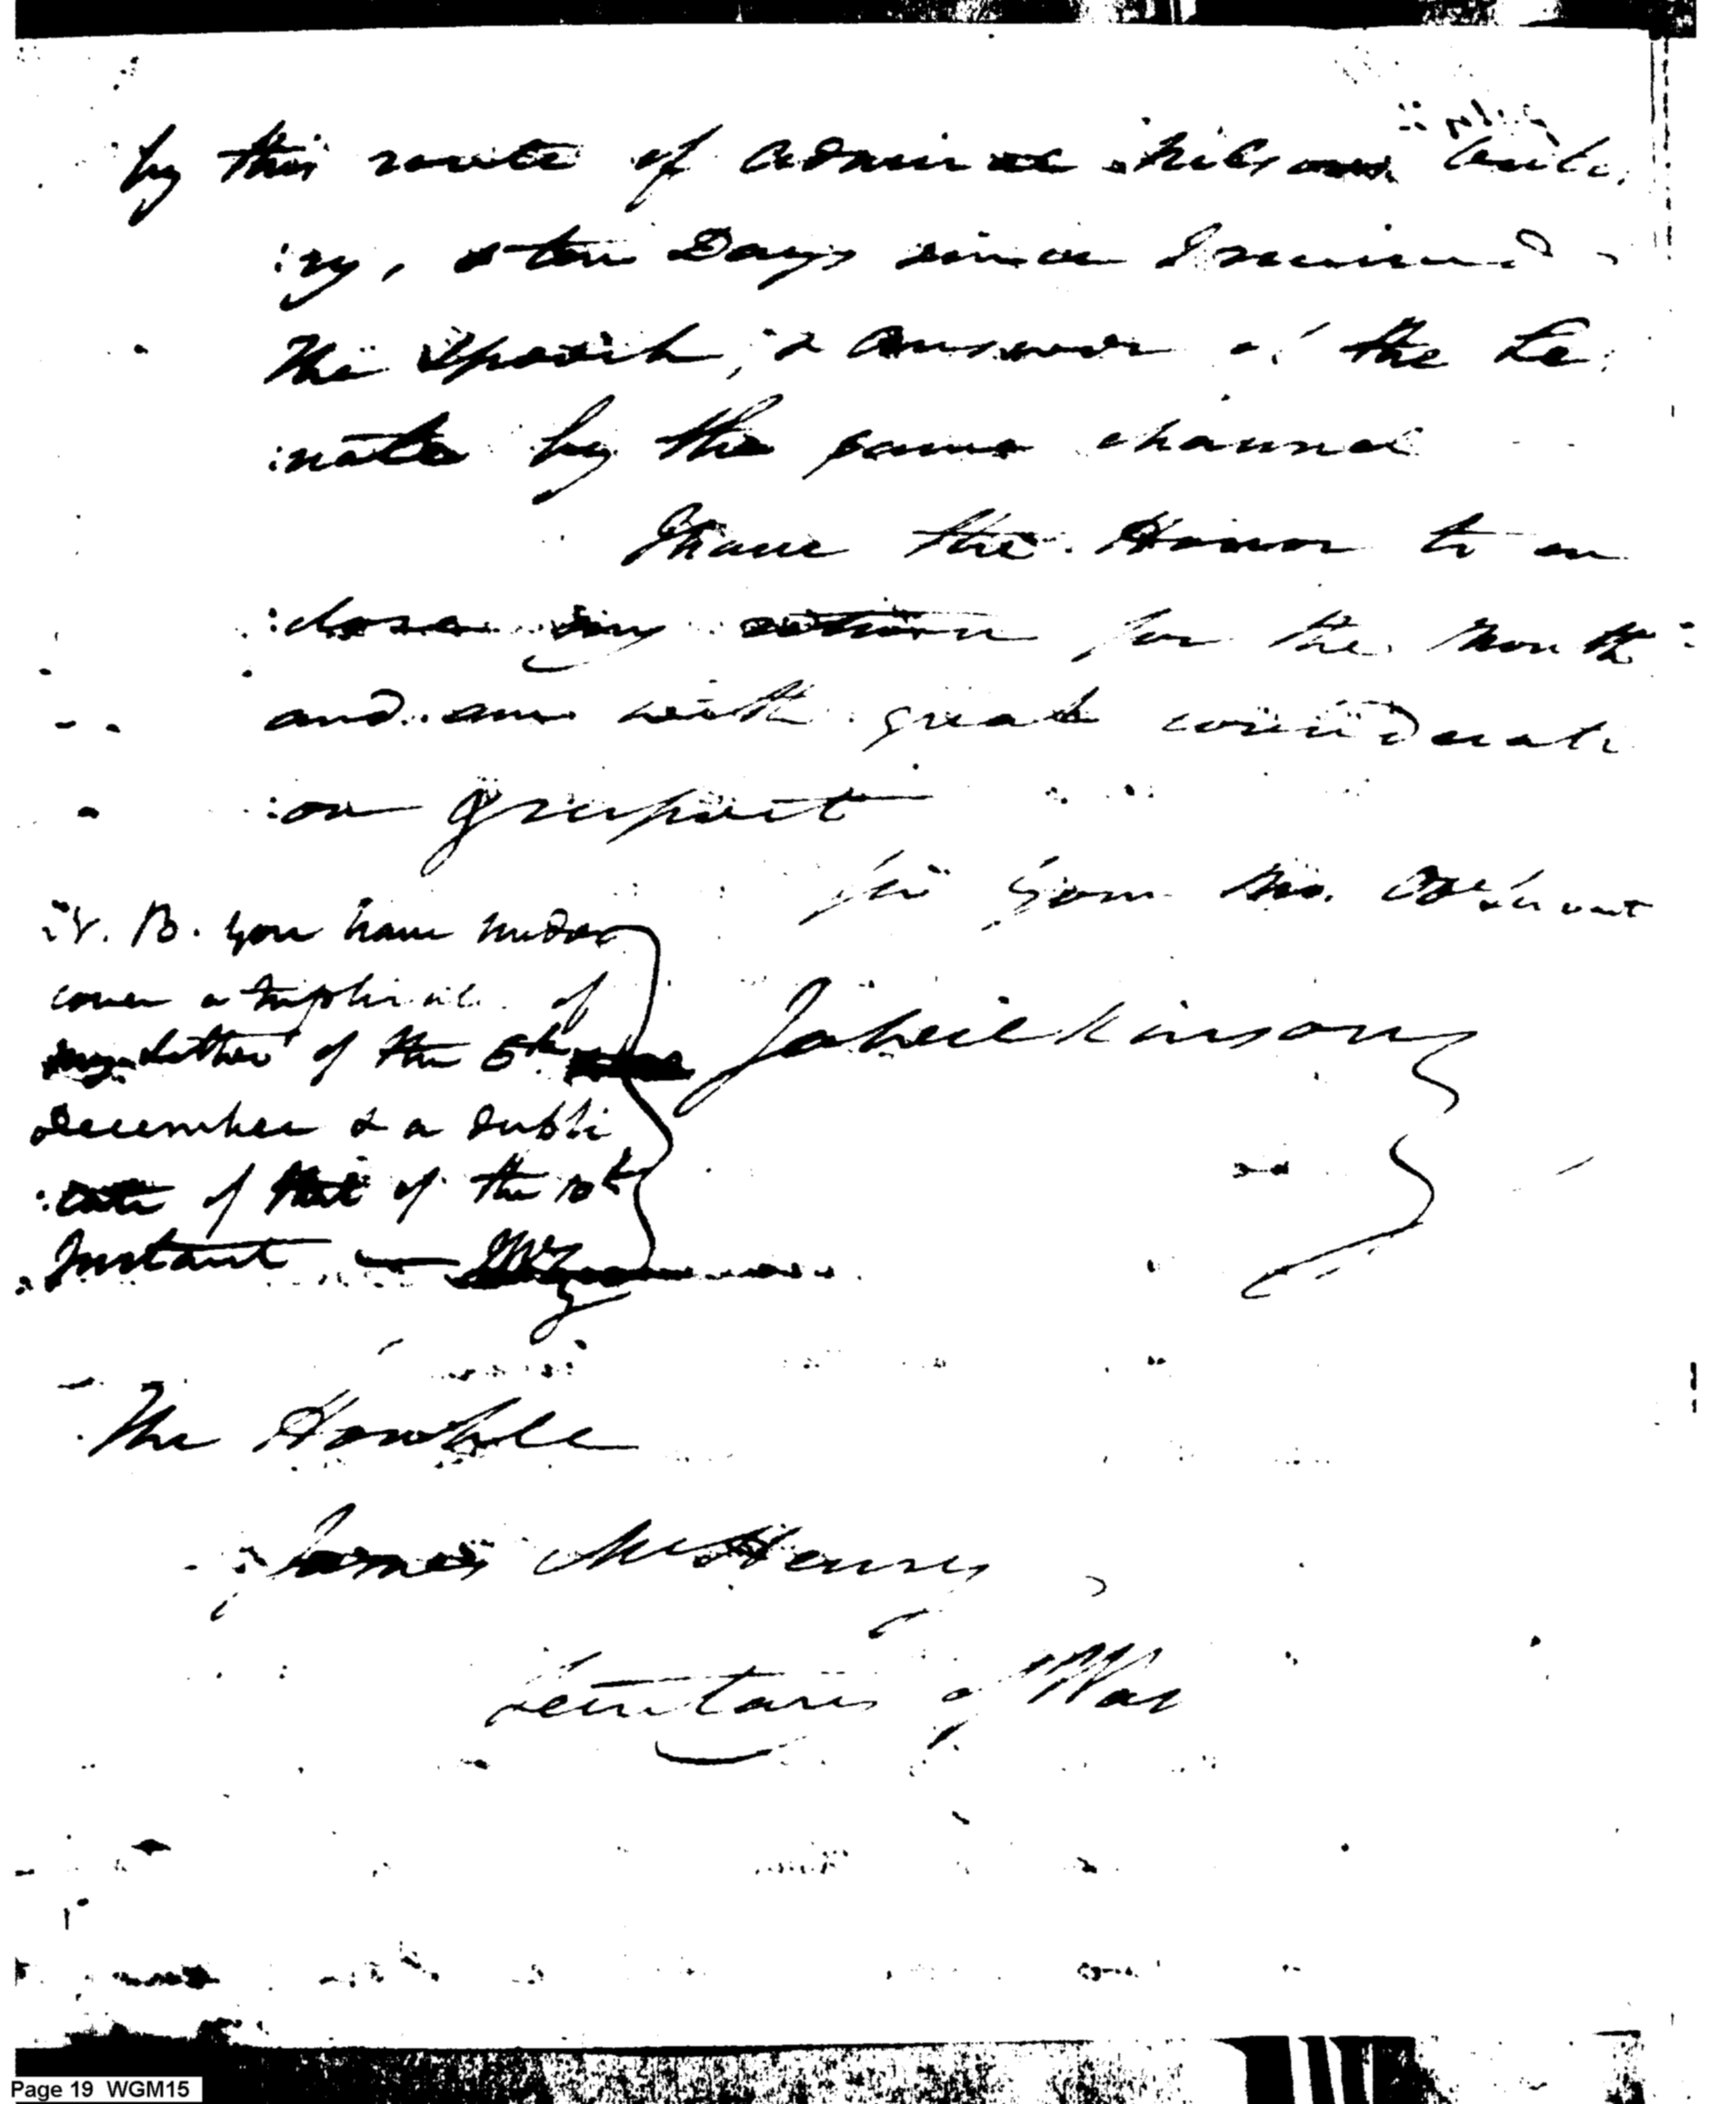 by this route of Admiral Nelsons Victo
:ry, & ten Days since I received
The Speech, & Answer of the Se
:nate by the same channel
I have the Honor to en
:close my return for the Month
and am with great considerati
:on & respect
Sir Your Mo. Ob Servant
Ja Wilkinson
N. B. you have under
cover a triplicate of
my Letter of the 6th
December & a dupli
:cate of that of the 10th
Instant —
The Honble
James McHenry
Secretary of War
Page 19 WGM15